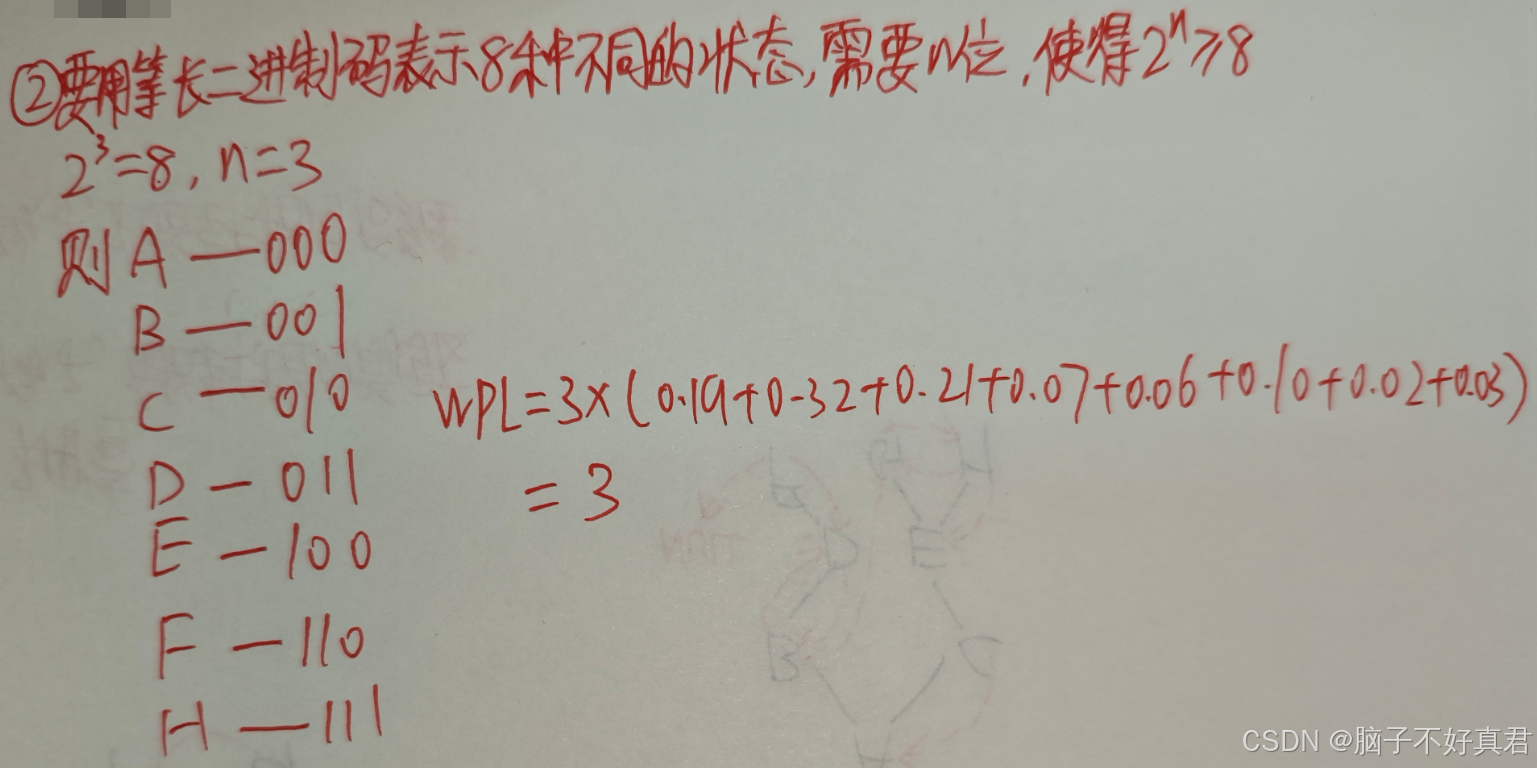 ②要用等长二进制码表示8种不同的状态,需要n位,使得2ⁿ≥8
2³=8, n=3
则 A — 000
B — 001
C — 010
WPL=3×(0.19+0.32+0.21+0.07+0.06+0.10+0.02+0.03)
D — 011
=3
E — 100
F — 110
H — 111
CSDN @脑子不好真君